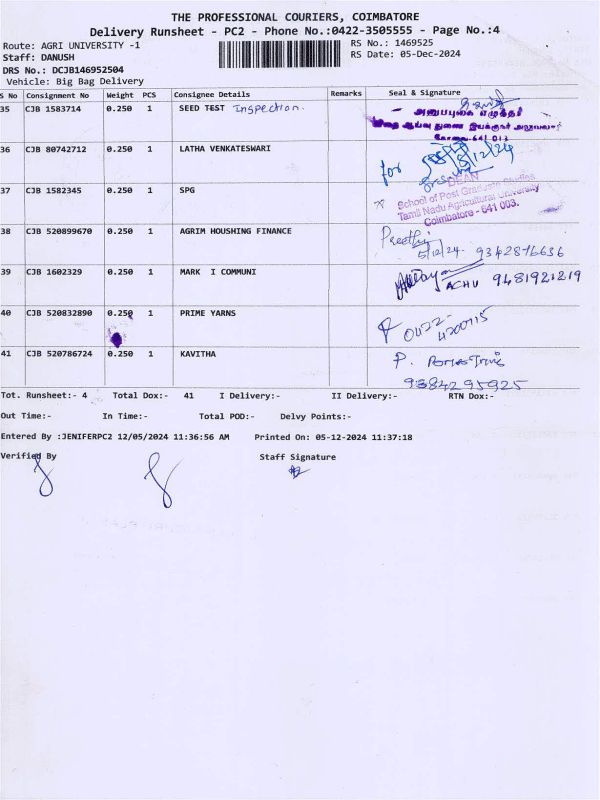 THE PROFESSIONAL COURIERS, COIMBATORE
Delivery Runsheet - PC2 - Phone No.:0422-3505555 - Page No.:4
Route: AGRI UNIVERSITY -1 RS No.: 1469525
Staff: DANUSH RS Date: 05-Dec-2024
DRS No.: DCJB146952504
Vehicle: Big Bag Delivery
S No Consignment No Weight PCS Consignee Details Remarks Seal & Signature
35 CJB 1583714 0.250 1 SEED TEST Inspection.
அனுபபுகை எழுத்தர்
கோவை-641 013
36 CJB 80742712 0.250 1 LATHA VENKATESWARI for 5/12/24
37 CJB 1582345 0.250 1 SPG
DEAN
School of Post Graduate Studies
Tamil Nadu Agricultural University
Coimbatore - 641 003.
38 CJB 520899670 0.250 1 AGRIM HOUSHING FINANCE Preethi
5/12/24. 9342876636
39 CJB 1602329 0.250 1 MARK I COMMUNI ACHU 9481921219
40 CJB 520832890 0.250 1 PRIME YARNS 0422-
4200115
41 CJB 520786724 0.250 1 KAVITHA P.
9384295925
Tot. Runsheet:- 4 Total Dox:- 41 I Delivery:- II Delivery:- RTN Dox:-
Out Time:- In Time:- Total POD:- Delvy Points:-
Entered By :JENIFERPC2 12/05/2024 11:36:56 AM Printed On: 05-12-2024 11:37:18
Verified By Staff Signature